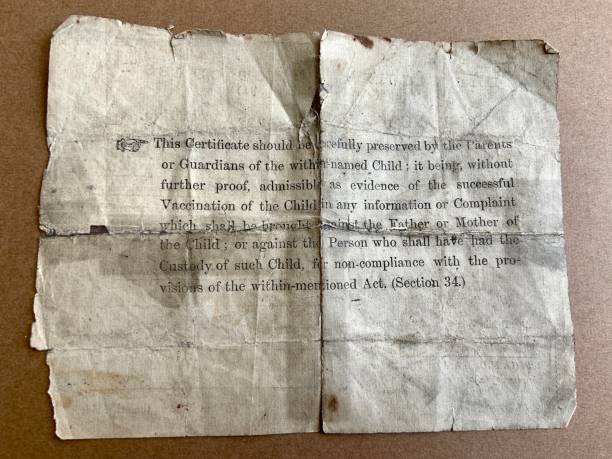 ☞ This Certificate should be carefully preserved by the Parents
or Guardians of the within-named Child ; it being, without
further proof, admissible as evidence of the successful
Vaccination of the Child in any information or Complaint
which shall be brought against the Father or Mother of
the Child ; or against the Person who shall have had the
Custody of such Child, for non-compliance with the pro-
visions of the within-mentioned Act. (Section 34.)